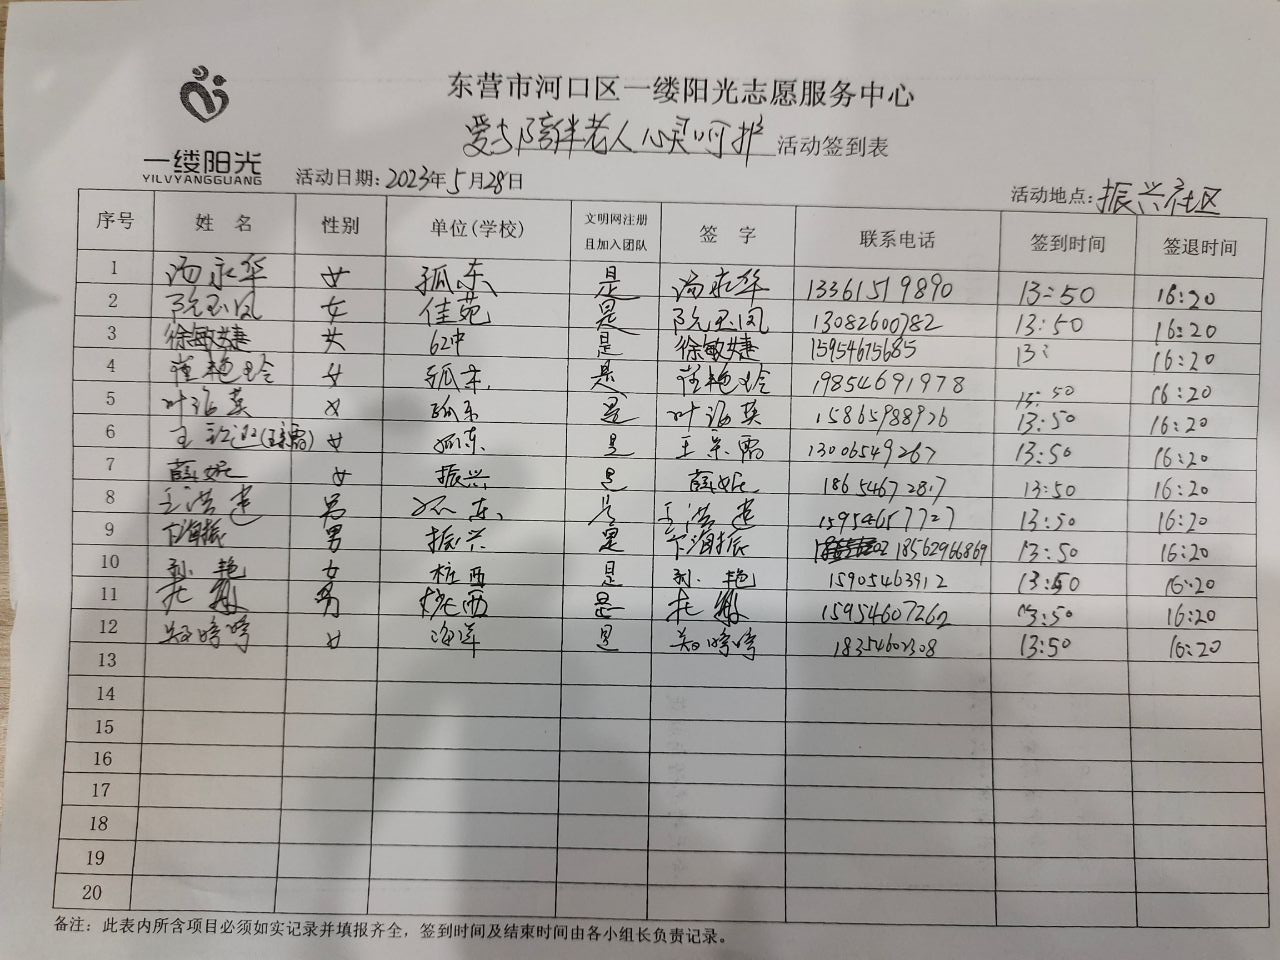 东营市河口区一缕阳光志愿服务中心
爱与陪伴老人心灵呵护 活动签到表
一缕阳光
YILVYANGGUANG
活动日期:2023年5月28日
活动地点:振兴社区
序号 姓名 性别 单位(学校) 文明网注册且加入团队 签字 联系电话 签到时间 签退时间
1 汤永华 女 孤东 是 汤永华 13361519890 13:50 16:20
2 阮玉凤 女 佳苑 是 阮玉凤 13082600782 13:50 16:20
3 徐敏婕 女 62中 是 徐敏婕 15954675685 13: 16:20
4 崔艳玲 女 孤东. 是 崔艳玲 19854691978 13:50 16:20
5 叶海英 女 孤东 是 叶海英 15865988926 13:50 16:20
6 女 孤东. 是 13006549267 13:50 16:20
7 薛妮 女 振兴 是 薛妮 18654672817 13:50 16:20
8 王洪建 男 孤东、 是 王洪建 15954657727 13:50 16:20
9 卞海振 男 振兴 是 卞海振 18562966869 13:50 16:20
10 孙艳 女 桩西 是 孙艳 15905463912 13:50 16:20
11 男 是 15954607262 13:50 16:20
12 郑婷婷 女 海洋 是 郑婷婷 18354602308 13:50 16:20
13
14
15
16
17
18
19
20
备注：此表内所含项目必须如实记录并填报齐全，签到时间及结束时间由各小组长负责记录。